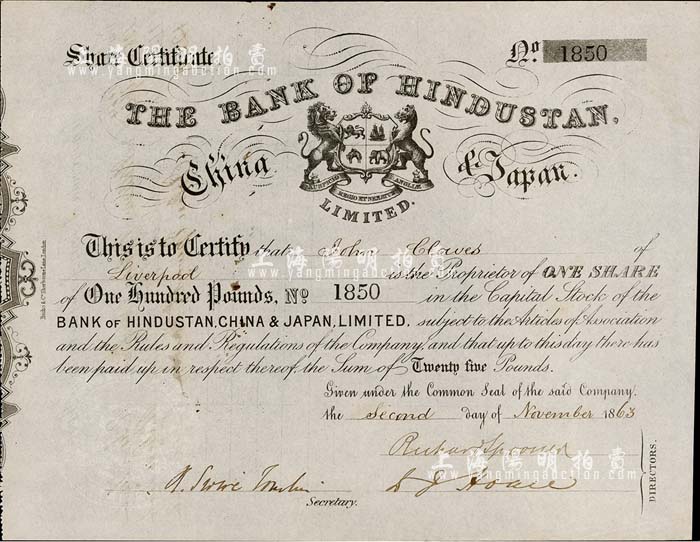 Share Certificate
No 1850
THE BANK OF HINDUSTAN,
China & Japan.
AUSPICIO REGIS ET SENATUS ANGLIÆ
LIMITED.
This is to Certify that John Clowes of
Liverpool is the Proprietor of ONE SHARE
of One Hundred Pounds, No 1850 in the Capital Stock of the
BANK OF HINDUSTAN, CHINA & JAPAN, LIMITED. subject to the Articles of Association
and the Rules and Regulations of the Company, and that up to this day there has
been paid up in respect thereof, the Sum of Twenty five Pounds.
Given under the Common Seal of the said Company.
the Second day of November 1863
Richard
Secretary.
DIRECTORS.
上海陽明拍賣
www.yangmingauction.com
上海陽明拍賣
www.yangmingauction.com
上海陽明拍賣
www.yangmingauction.com